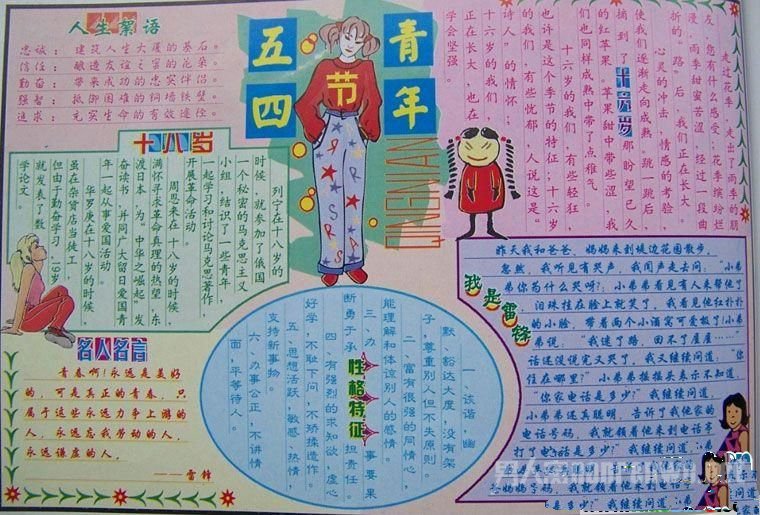 人生絮语
忠诚：建筑人生大厦的基石。
信任：酿造友谊之蜜的花朵。
勤奋：带来成功的忠实伴侣。
强者：抵御困难的铜墙铁壁。
追求：充实生命的有效途径。
五四
青年
节
QINGNIAN
走过花季，走出了雨季的朋
友，您有什么感受，花季缤纷烂
漫，雨季甜蜜苦涩，经过一段曲
折的“路”后，我们正在长大。
心灵的冲击，情感的考验，
使我们逐渐走向成熟，跳一跳后
摘到了
十六岁
那盼望已久
的红苹果，苹果甜中带些涩，我
们也同样成熟中带了点稚气。
十六岁的我们，有些轻狂，
也许是这个季节的特征；十六岁
的我们，有些忧郁，人说这是“
诗人”的情怀；
十六岁的我们
正在长大，也在
学会坚强。
十八岁
列宁在十八岁的
时候，就参加了俄国
一个秘密的马克思主义
小组，结识了一些青年，
一起学习和讨论马克思著作，
开展革命活动。
周恩来在十八岁的时候，
满怀寻求革命真理的热望，东
渡日本，为“中华之崛起”发
奋读书，并同广大留日爱国青
年一起从事爱国活动。
华罗庚在十八岁的时候，
虽在杂货店当徒工，
但由于勤奋学习，19岁
就发表了数
学论文。
名人名言
青春啊！永远是美好
的，可是真正的青春，只
属于这些永远力争上游的
人，永远忘我劳动的人，
永远谦虚的人。
——雷锋
性格特征
一、诙谐、幽
默，豁达大度，没有架
子，尊重别人，但不失原则。
二、富有很强的同情心，
能理解和体谅别人的感情。
三、办事要果
断，勇于承担责任。
四、有强烈的求知欲，虚心
好学，不耻下问，不矫揉造作。
五、思想活跃，敏感，热情
支持新事物。
六、办事公正，不讲情
面，平等待人。
我是雷锋
昨天我和爸爸、妈妈来到域边花园散步。
忽然，我听见有哭声，我闻声走去问：“小弟
弟你为什么哭呀？小弟弟看见有人来帮他了
，泪珠挂在脸上就笑了，我看见他红扑扑
的小脸，带着两个小酒窝可爱极了！小弟
弟说：“我迷了路，回不了屋……”
话还没说完又哭了，我又继续问：“你
住在哪里？”小弟弟摇摇头表示不知道，
“你家电话是多少？”我继续问道，
小弟弟还真聪明，告诉了我他家的
电话号码，我就领着他来到电话亭
打了电话是多少？”我继续问道，